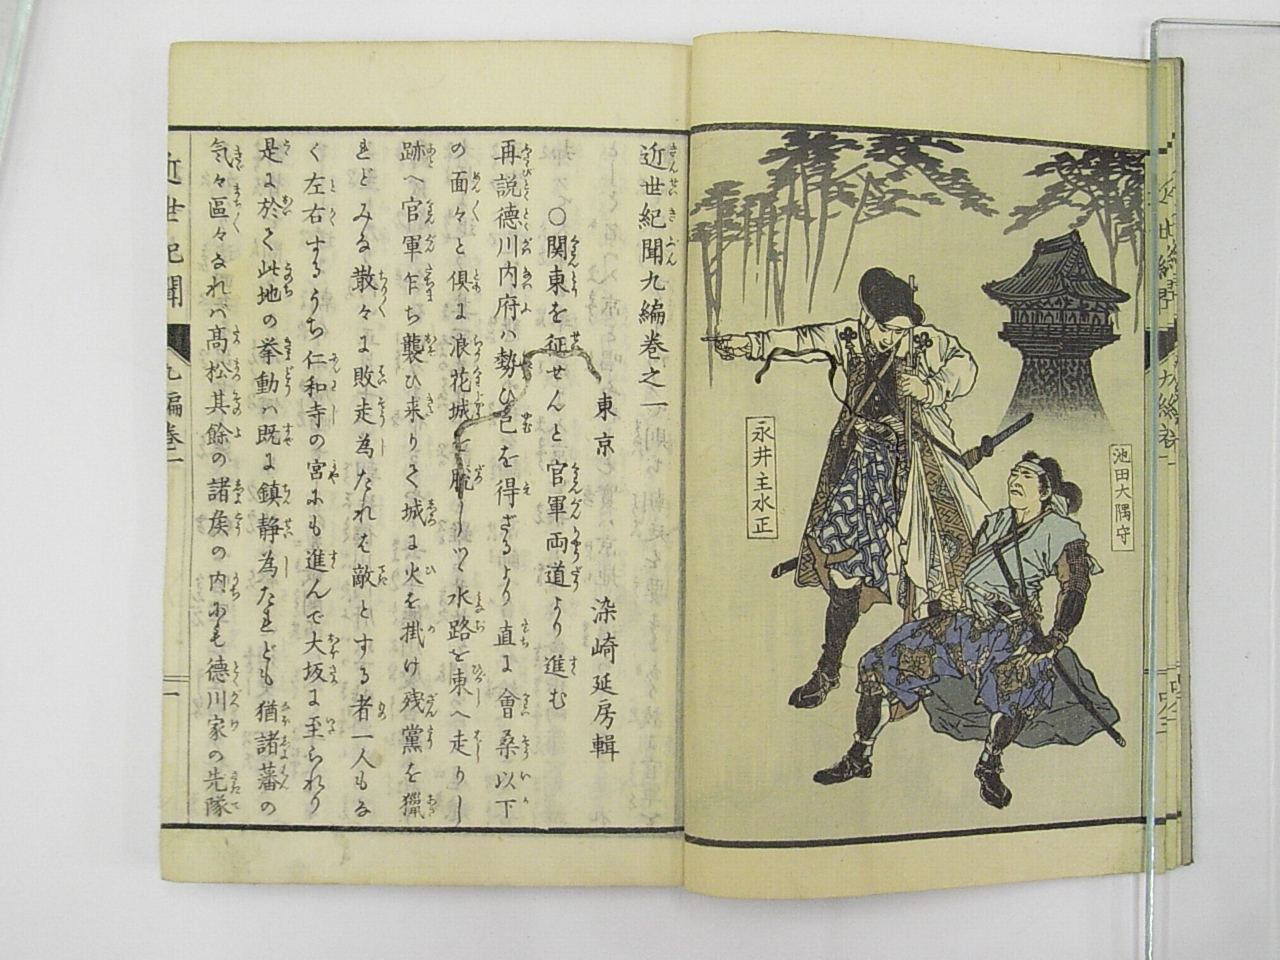 永井主水正
池田大隅守
近世紀聞九編巻之一
東京 染崎延房輯
○関東を征せんと官軍両道より進む
再説徳川内府ハ勢ひ已を得ざるより直に會桑以下
の面々と倶に浪花城を脱しつゝ水路を東へ走りし
跡へ官軍乍ち襲ひ来りて城に火を掛け残黨を獵
れどみな散々に敗走為たれば敵とする者一人もな
く左右するうち仁和寺の宮にも進んで大坂に至られり
是に於て此地の挙動ハ既に鎮静為たれども猶諸藩の
気々區々なれバ髙松其餘の諸矦の内にも徳川家の先隊
近世紀聞 九編巻一
一